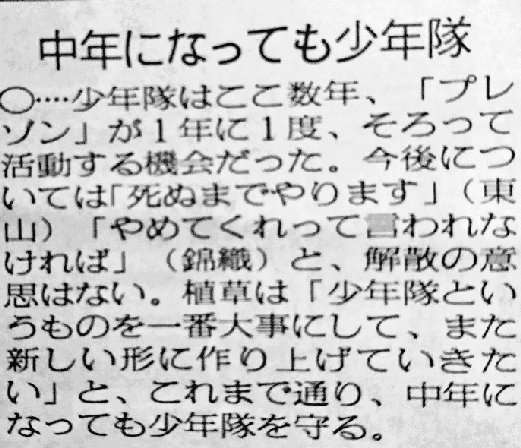 中年になっても少年隊
○‥‥少年隊はここ数年、「プレ
ゾン」が１年に１度、そろって
活動する機会だった。今後につ
いては「死ぬまでやります」（東
山）「やめてくれって言われな
ければ」（錦織）と、解散の意
思はない。植草は「少年隊とい
うものを一番大事にして、また
新しい形に作り上げていきた
い」と、これまで通り、中年に
なっても少年隊を守る。